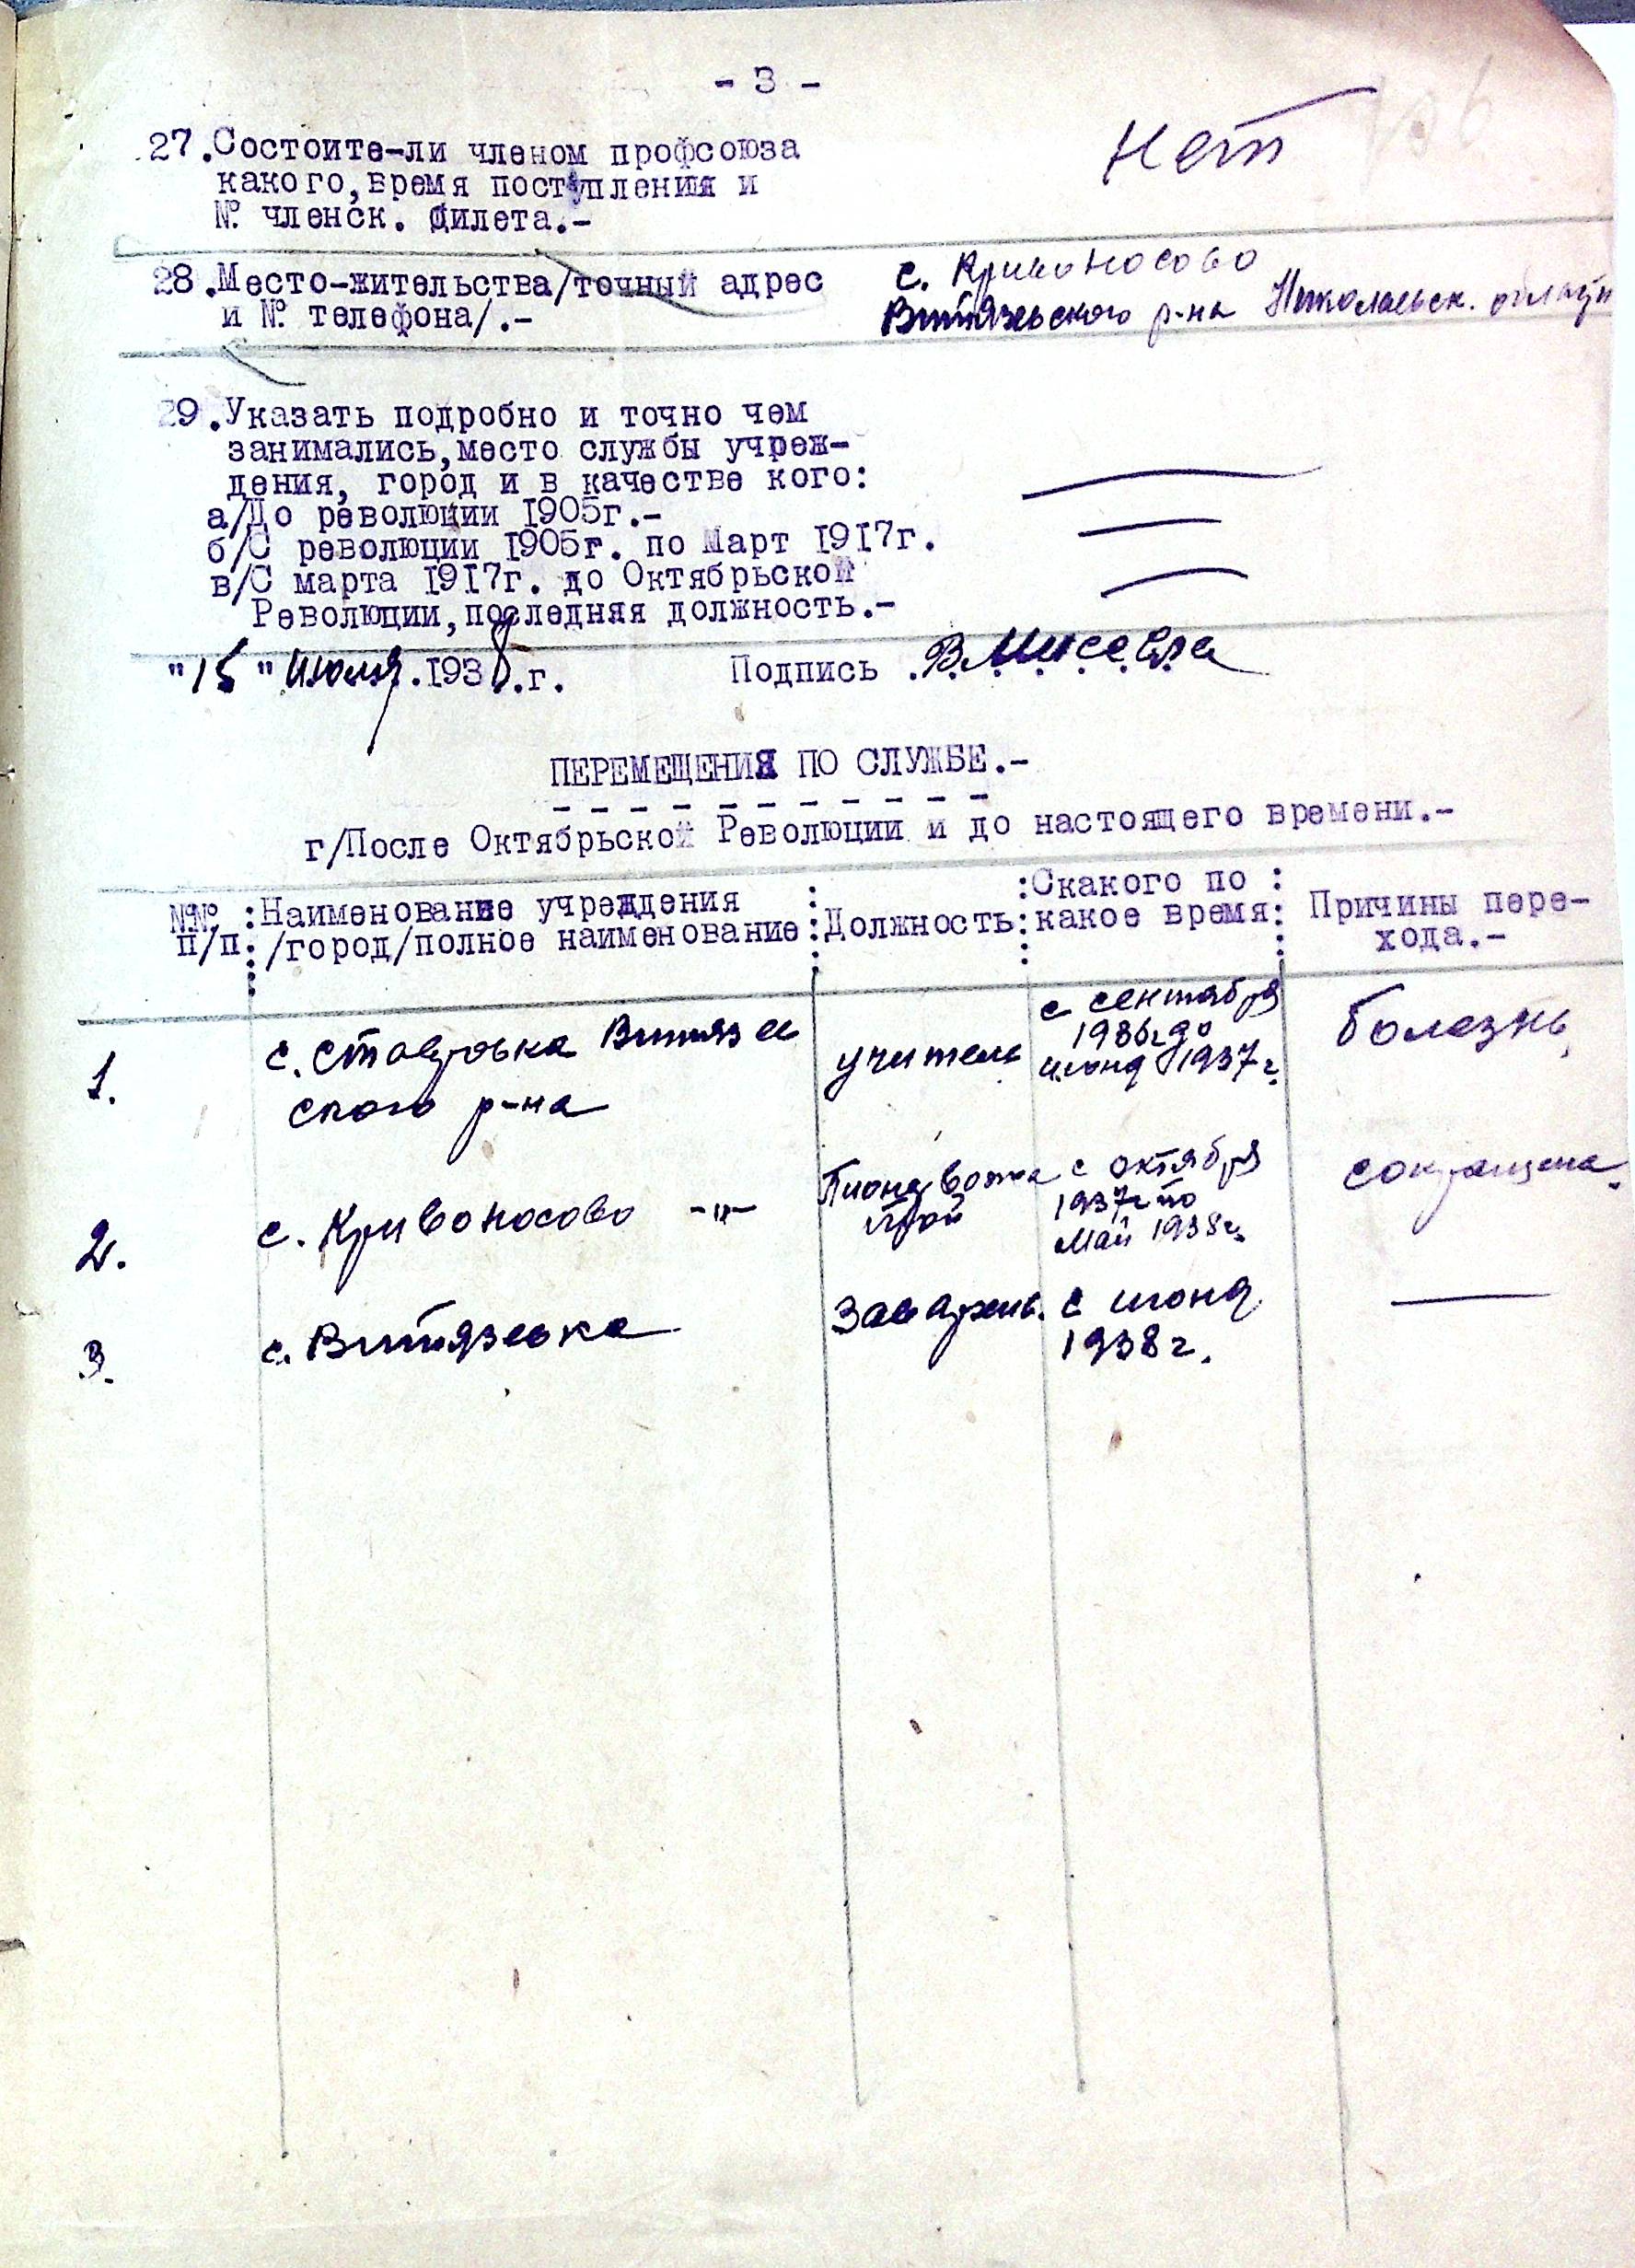 - 3 -
27.Состоите-ли членом профсоюза
какого,время поступления и
№ членск. билета.-
Нет
28.Место-жительства/точный адрес
и № телефона/.-
с. Кривоносово
Витязевского р-на Николаевск.
29.Указать подробно и точно чем
занимались,место службы учреж-
дения, город и в качестве кого:
а/До революции 1905г.-
б/С революции 1905г. по Март 1917г.
в/С марта 1917г. до Октябрьской
Революции,последняя должность.-
"15" июля.1938.г. Подпись
ПЕРЕМЕЩЕНИЯ ПО СЛУЖБЕ.-
г/После Октябрьской Революции и до настоящего времени.-
№№ п/п :Наименование учреждения /город/полное наименование :Должность: Скакого по какое время: Причины пере-хода.-
1. с. Ставровка Витязев
ского р-на
учитель
с сентября
1936г до
июня 1937г.
болезнь
2. с. Кривоносово -"-
Пионервожа
той
с октября
1937г по
май 1938г.
сокращена
3. с. Витязевка
с июня
1938г.